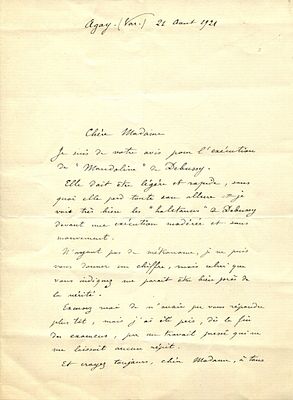 Agay. (Var.) 21 Aout 1921
Chère Madame
Je suis de votre avis pour l'exécution
de "Mandoline" de Debussy.
Elle doit être légère et rapide, sans
quoi elle perd toute son allure et je
vois très bien les de Debussy
devant une exécution modérée et sans
mouvement.
N'ayant pas de métronome, je ne puis
vous donner un chiffre, mais celui que
vous indiquez me paraît être bien près de
la vérité.
Excusez moi de n'avoir pu vous répondre
plus tôt, mais j'ai été pris, dès la fin
des examens, par un travail pressé qui ne
me laissait aucun répit.
Et croyez toujours, chère Madame, à tous